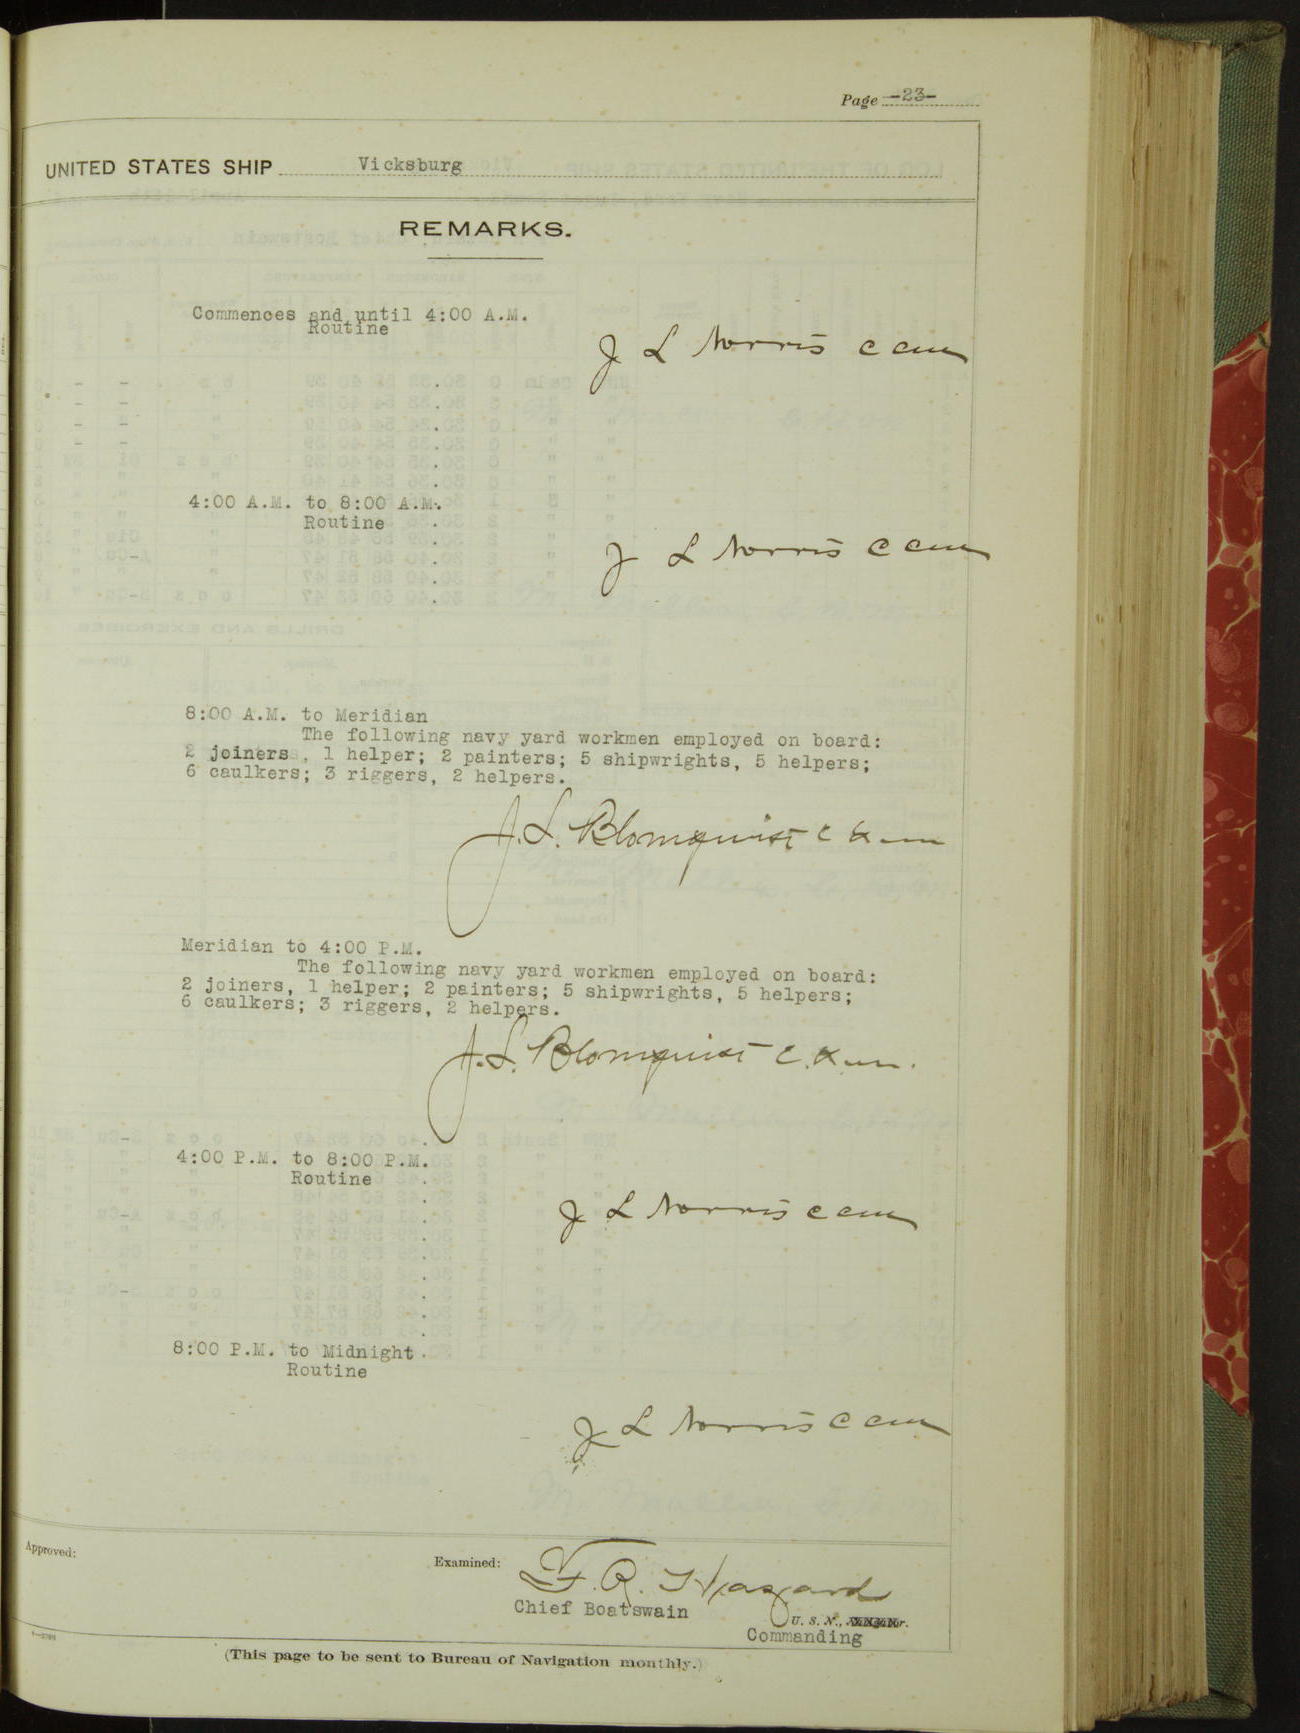 Page -23-
UNITED STATES SHIP Vicksburg
REMARKS.
Commences and until 4:00 A.M.
Routine
J L Norris C CM
4:00 A.M. to 8:00 A.M.
Routine
J L Norris C CM
8:00 A.M. to Meridian
The following navy yard workmen employed on board:
2 joiners, 1 helper; 2 painters; 5 shipwrights, 5 helpers;
6 caulkers; 3 riggers, 2 helpers.
J. L. Blomquist
Meridian to 4:00 P.M.
The following navy yard workmen employed on board:
2 joiners, 1 helper; 2 painters; 5 shipwrights, 5 helpers;
6 caulkers; 3 riggers, 2 helpers.
J. L. Blomquist
4:00 P.M. to 8:00 P.M.
Routine
J L Norris C CM
8:00 P.M. to Midnight
Routine
J L Norris C CM
Approved:
Examined: F. R. Hazard
Chief Boatswain
U. S. N.,
Commanding
(This page to be sent to Bureau of Navigation monthly.)